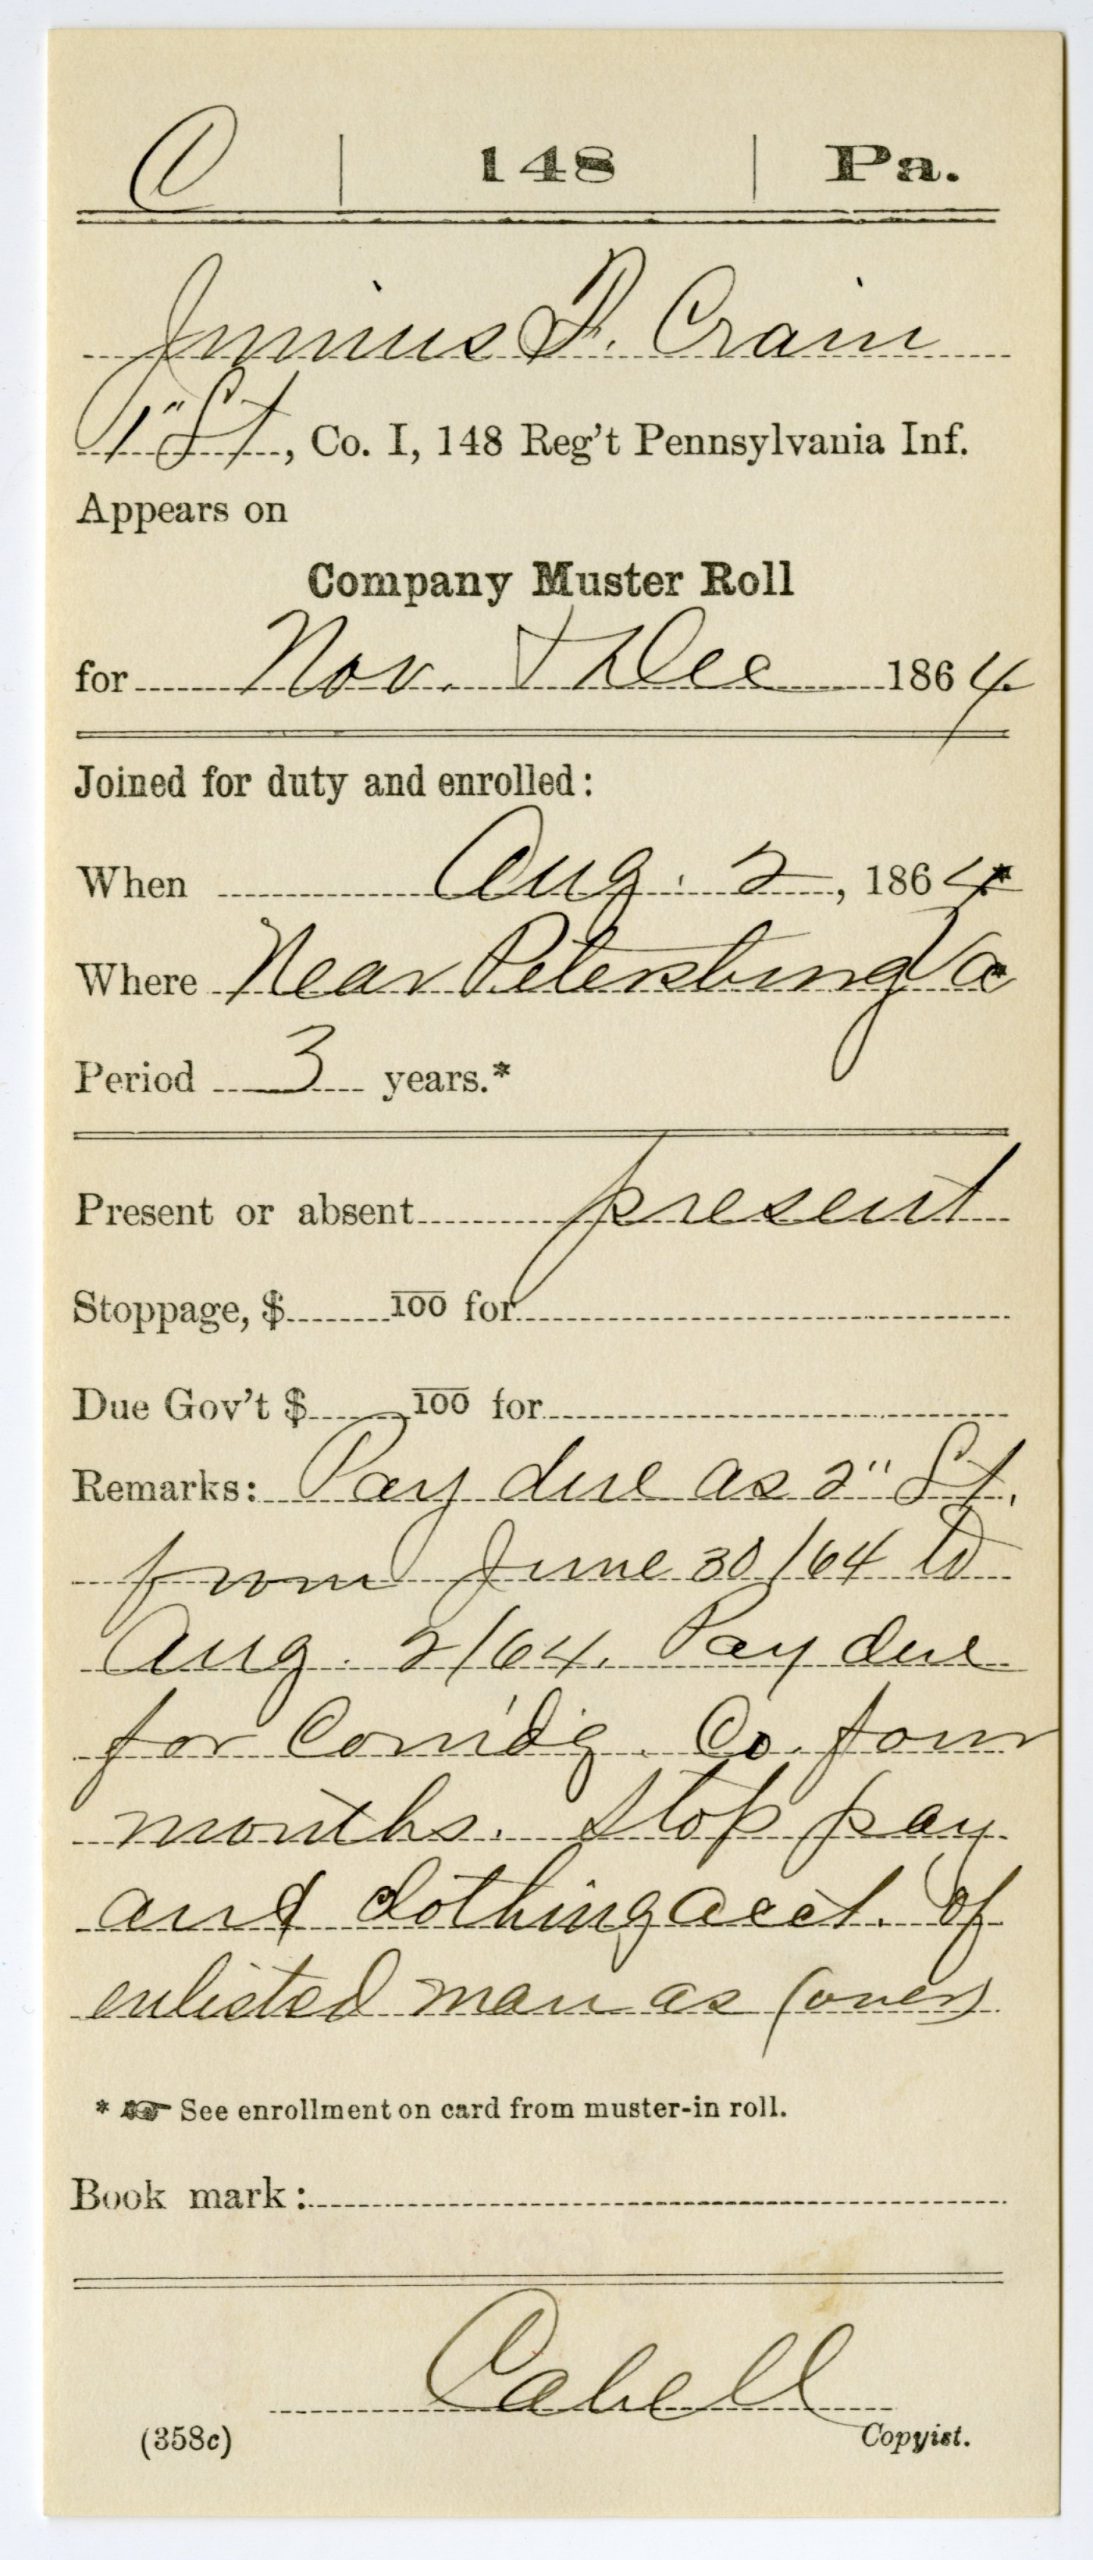 C | 148 | Pa.
Junius F. Crain
1" Lt, Co. I, 148 Reg't Pennsylvania Inf.
Appears on
Company Muster Roll
for Nov. & Dec 1864
Joined for duty and enrolled:
When Aug. 2, 1864*
Where Near Petersburg Va
Period 3 years.*
Present or absent present
Stoppage, $ 100 for
Due Gov't $ 100 for
Remarks: Pay due as 2" Lt.
from June 30/64 to
Aug. 2/64. Pay due
for Com'd'g. Co. four
months. Stop pay
and clothing acct. of
enlisted man as (over)
* ☞ See enrollment on card from muster-in roll.
Book mark:
Cabell
(358c) Copyist.